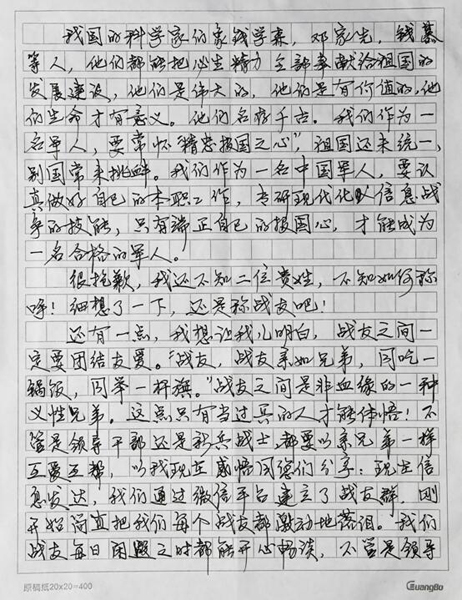 我国的科学家们象钱学森，邓家先，钱慕
等人，他们都能把心生精力全部奉献给祖国的
发展建设，他们是伟大的，他们是有价值的，他
们生命才有意义。他们名存千古。我们作为一
名军人，要常怀“精忠报国之心”，祖国还未统一，
别国常来挑衅。我们作为一名中国军人，要认
真做好自己的本职工作，专研现代化队信息战
争的技能，只有端正自己的报国心，才能成为
一名合格的军人。
很抱歉，我还不知二位贵姓，不知如何称
呼！细想了一下，还是称战友吧！
还有一点，我想让我儿明白，战友之间一
定要团结友爱。“战友，战友亲如兄弟，同吃一
锅饭，同举一杆旗。”战友之间是非血缘的一种
义性兄弟。这点只有当过兵的人才能体悟！不
管是领导干部还是新兵战士，都要以亲兄弟一样
互爱互帮，以我现在感悟同您们分享：现在信
息发达，我们通过微信平台建立了战友群，刚
开始简直把我们每个战友都激动地落泪。我们
战友每日闲暇之时都能开心畅谈，不管是领导
原稿纸20x20=400
GuangBo